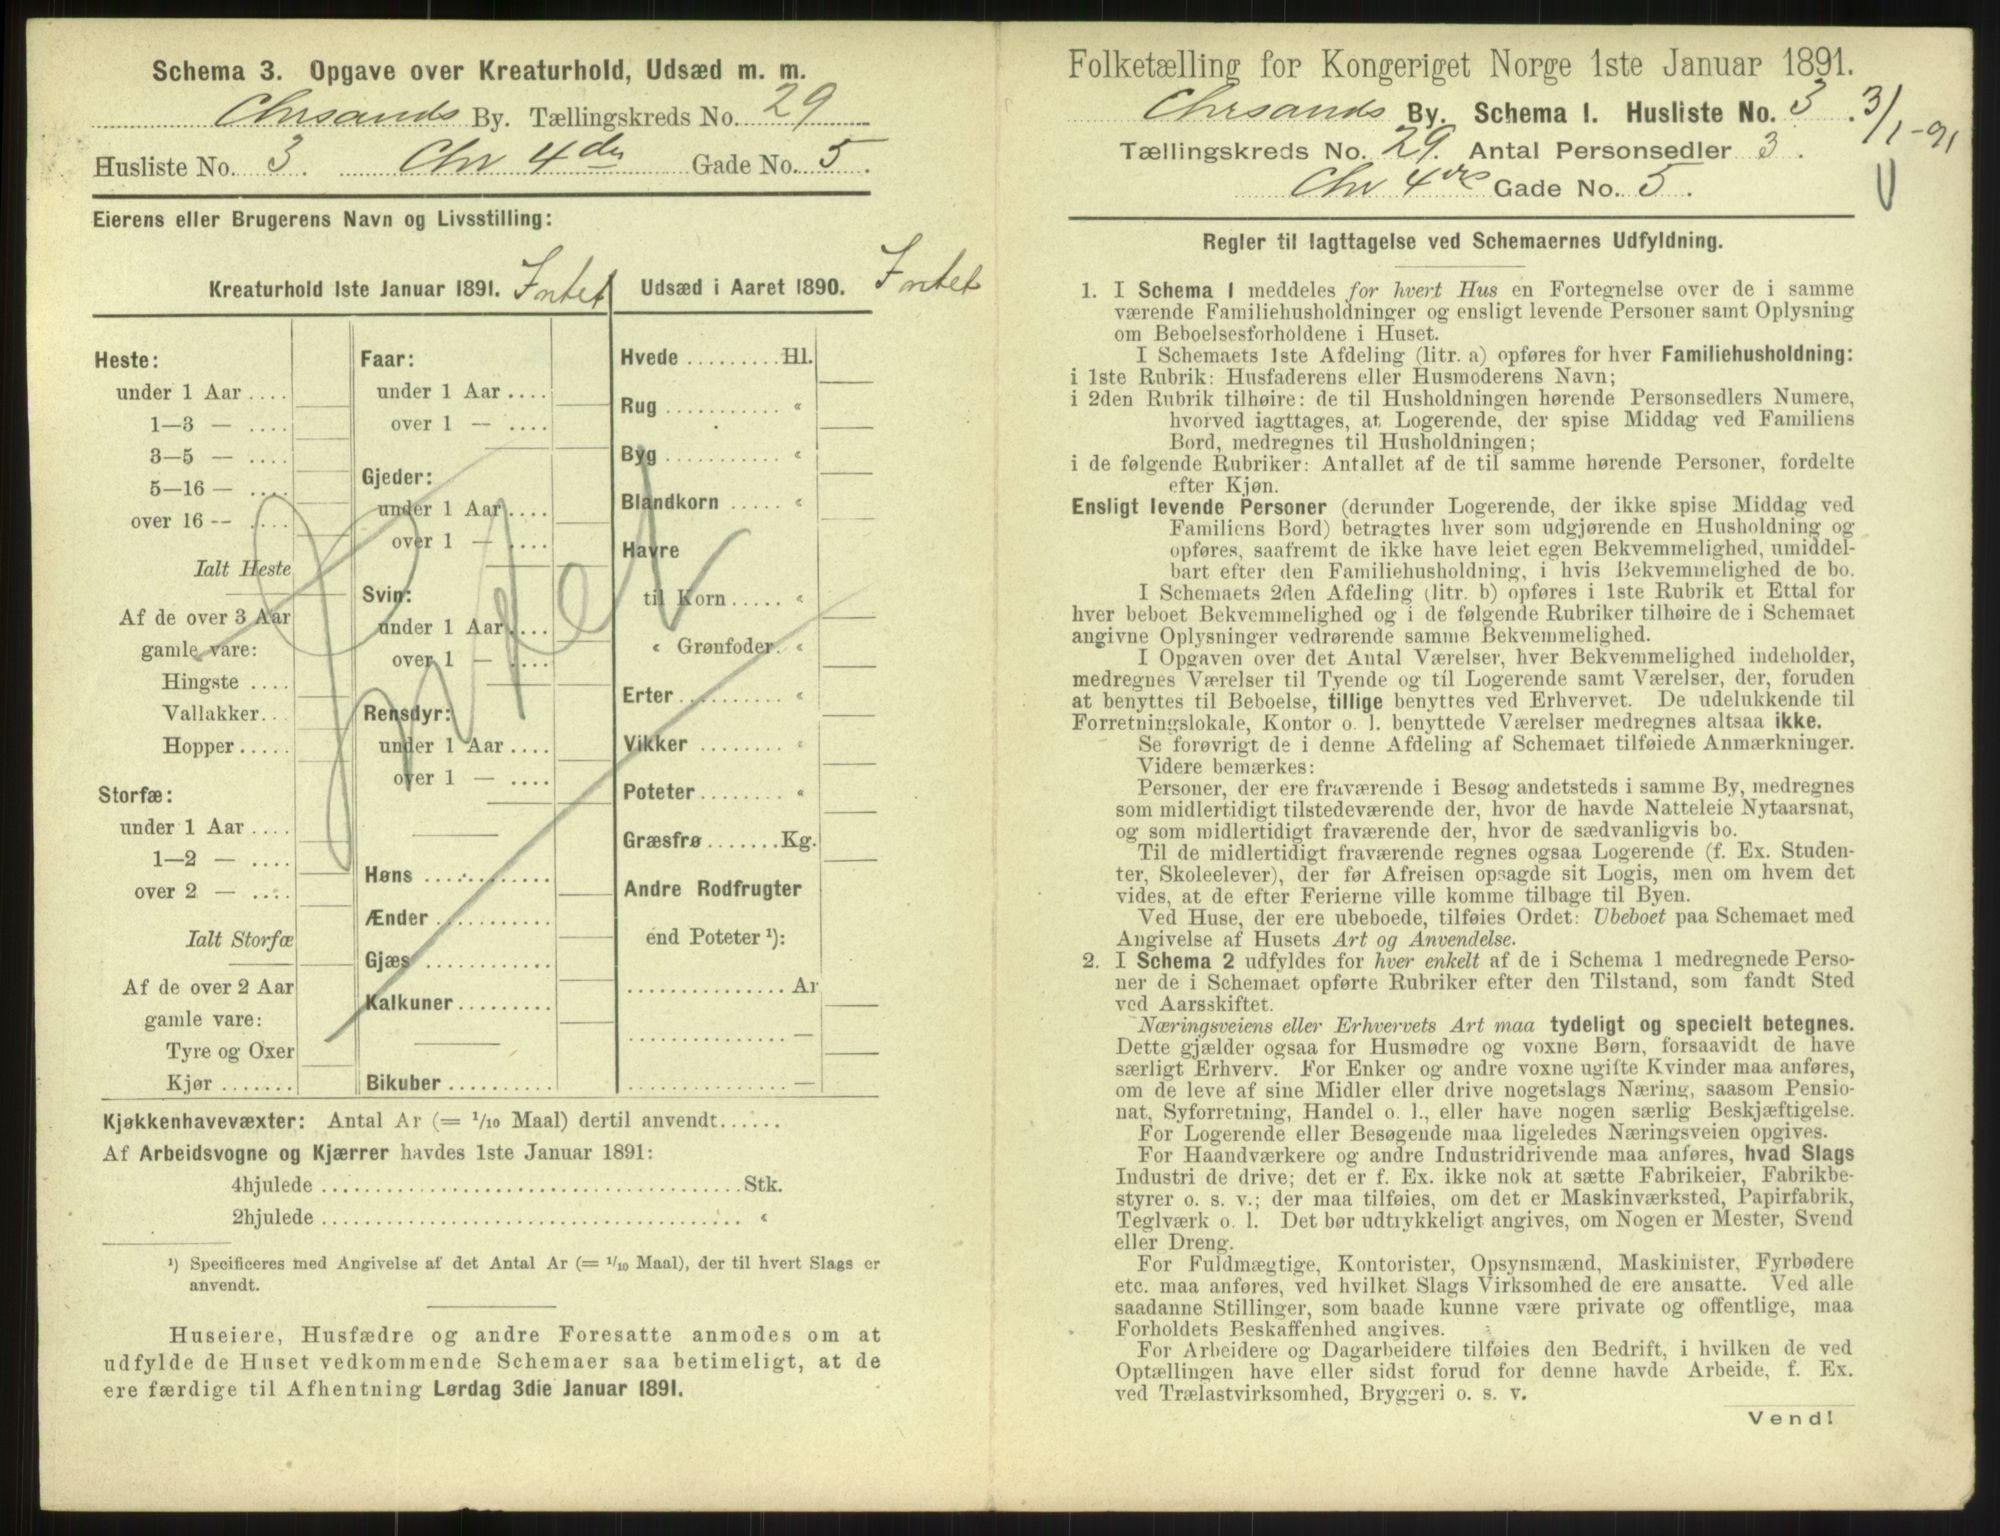 Schema 3. Opgave over Kreaturhold, Udsæd m. m.
Chrsands By. Tællingskreds No. 29
Husliste No. 3. Chr 4des Gade No. 5.
Eierens eller Brugerens Navn og Livsstilling:
Kreaturhold 1ste Januar 1891. Intet
Heste:
under 1 Aar ....
1—3 — ....
3—5 — ....
5—16 — ....
over 16 -- ....
Ialt Heste
Af de over 3 Aar
gamle vare:
Hingste ....
Vallakker...
Hopper.....
Storfæ:
under 1 Aar ....
1—2 — ....
over 2 — ....
Ialt Storfæ
Af de over 2 Aar
gamle vare:
Tyre og Oxer
Kjør .......
Faar:
under 1 Aar ....
over 1 — ....
Gjeder:
under 1 Aar ....
over 1 — ....
Svin:
under 1 Aar ....
over 1 — ....
Rensdyr:
under 1 Aar ....
over 1 — ....
Høns ............
Ænder ...........
Gjæs ............
Kalkuner .........
Bikuber ..........
Udsæd i Aaret 1890. Intet
Hvede .........Hl.
Rug ........... «
Byg ........... «
Blandkorn ..... «
Havre
til Korn ..... «
« Grønfoder. «
Erter ......... «
Vikker ........ «
Poteter........ «
Græsfrø .......Kg.
Andre Rodfrugter
end Poteter ¹):
............... Ar
............... —
............... —
Kjøkkenhavevæxter: Antal Ar (= 1/10 Maal) dertil anvendt......
Af Arbeidsvogne og Kjærrer havdes 1ste Januar 1891:
4hjulede ......................................Stk.
2hjulede ...................................... «
¹) Specificeres med Angivelse af det Antal Ar (= 1/10 Maal), der til hvert Slags er
anvendt.
Huseiere, Husfædre og andre Foresatte anmodes om at
udfylde de Huset vedkommende Schemaer saa betimeligt, at de
ere færdige til Afhentning Lørdag 3die Januar 1891.
Folketælling for Kongeriget Norge 1ste Januar 1891.
Chrsands By. Schema I. Husliste No. 3. 3/1-91
Tællingskreds No. 29. Antal Personsedler 3.
Chr 4des Gade No. 5.
Regler til Iagttagelse ved Schemaernes Udfyldning.
1. I Schema 1 meddeles for hvert Hus en Fortegnelse over de i samme
værende Familiehusholdninger og ensligt levende Personer samt Oplysning
om Beboelsesforholdene i Huset.
I Schemaets 1ste Afdeling (litr. a) opføres for hver Familiehusholdning:
i 1ste Rubrik: Husfaderens eller Husmoderens Navn;
i 2den Rubrik tilhøire: de til Husholdningen hørende Personsedlers Numere,
hvorved iagttages, at Logerende, der spise Middag ved Familiens
Bord, medregnes til Husholdningen;
i de følgende Rubriker: Antallet af de til samme hørende Personer, fordelte
efter Kjøn.
Ensligt levende Personer (derunder Logerende, der ikke spise Middag ved
Familiens Bord) betragtes hver som udgjørende en Husholdning og
opføres, saafremt de ikke have leiet egen Bekvemmelighed, umiddel-
bart efter den Familiehusholdning, i hvis Bekvemmelighed de bo.
I Schemaets 2den Afdeling (litr. b) opføres i 1ste Rubrik et Ettal for
hver beboet Bekvemmelighed og i de følgende Rubriker tilhøire de i Schemaet
angivne Oplysninger vedrørende samme Bekvemmelighed.
I Opgaven over det Antal Værelser, hver Bekvemmelighed indeholder,
medregnes Værelser til Tyende og til Logerende samt Værelser, der, foruden
at benyttes til Beboelse, tillige benyttes ved Erhvervet. De udelukkende til
Forretningslokale, Kontor o. l. benyttede Værelser medregnes altsaa ikke.
Se forøvrigt de i denne Afdeling af Schemaet tilføiede Anmærkninger.
Videre bemærkes:
Personer, der ere fraværende i Besøg andetsteds i samme By, medregnes
som midlertidigt tilstedeværende der, hvor de havde Natteleie Nytaarsnat,
og som midlertidigt fraværende der, hvor de sædvanligvis bo.
Til de midlertidigt fraværende regnes ogsaa Logerende (f. Ex. Studen-
ter, Skoleelever), der før Afreisen opsagde sit Logis, men om hvem det
vides, at de efter Ferierne ville komme tilbage til Byen.
Ved Huse, der ere ubeboede, tilføies Ordet: Ubeboet paa Schemaet med
Angivelse af Husets Art og Anvendelse.
2. I Schema 2 udfyldes for hver enkelt af de i Schema 1 medregnede Perso-
ner de i Schemaet opførte Rubriker efter den Tilstand, som fandt Sted
ved Aarsskiftet.
Næringsveiens eller Erhvervets Art maa tydeligt og specielt betegnes.
Dette gjælder ogsaa for Husmødre og voxne Børn, forsaavidt de have
særligt Erhverv. For Enker og andre voxne ugifte Kvinder maa anføres,
om de leve af sine Midler eller drive nogetslags Næring, saasom Pensio-
nat, Syforretning, Handel o. l., eller have nogen særlig Beskjæftigelse.
For Logerende eller Besøgende maa ligeledes Næringsveien opgives.
For Haandværkere og andre Industridrivende maa anføres, hvad Slags
Industri de drive; det er f. Ex. ikke nok at sætte Fabrikeier, Fabrikbe-
styrer o. s. v.; der maa tilføies, om det er Maskinværksted, Papirfabrik,
Teglværk o. l. Det bør udtrykkeligt angives, om Nogen er Mester, Svend
eller Dreng.
For Fuldmægtige, Kontorister, Opsynsmænd, Maskinister, Fyrbødere
etc. maa anføres, ved hvilket Slags Virksomhed de ere ansatte. Ved alle
saadanne Stillinger, som baade kunne være private og offentlige, maa
Forholdets Beskaffenhed angives.
For Arbeidere og Dagarbeidere tilføies den Bedrift, i hvilken de ved
Optællingen have eller sidst forud for denne havde Arbeide, f. Ex.
ved Trælastvirksomhed, Bryggeri o. s. v.
Vend!